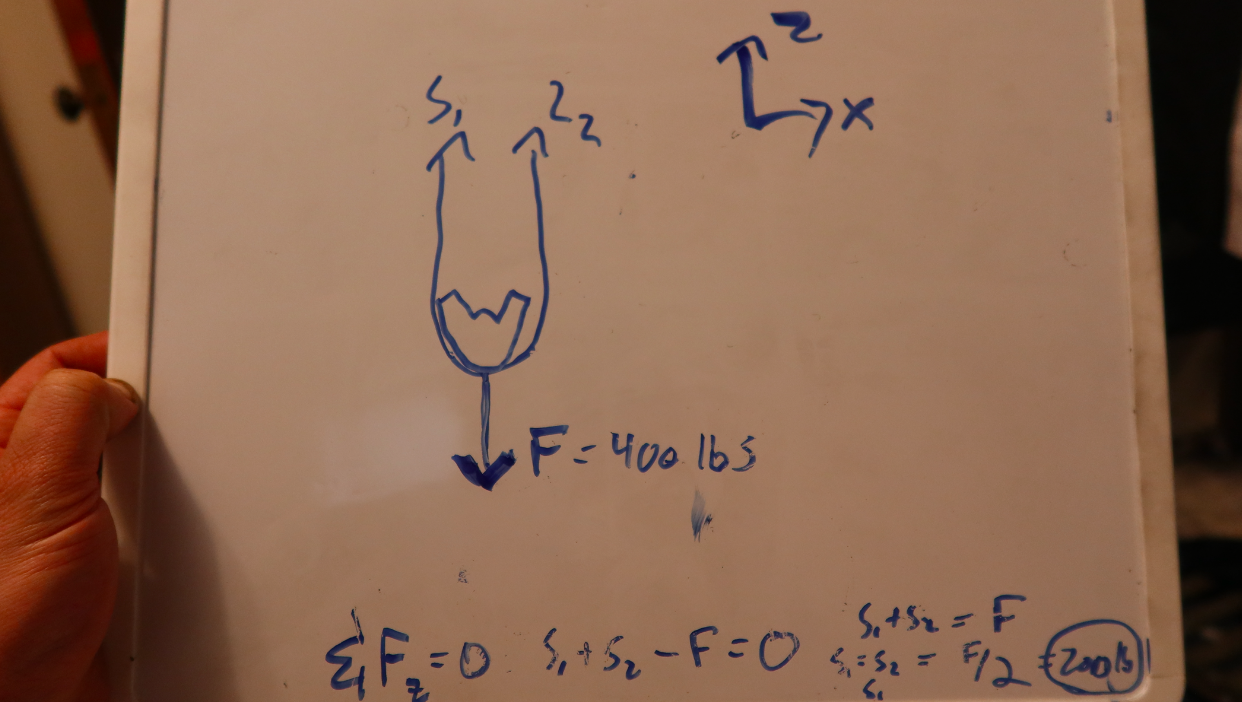 z
x
S₁
S₂
F = 400 lbs
ΣF_z = 0   S₁ + S₂ − F = 0
S₁ + S₂ = F
S₁ = S₂ = F/2 = 200 lb
S₁